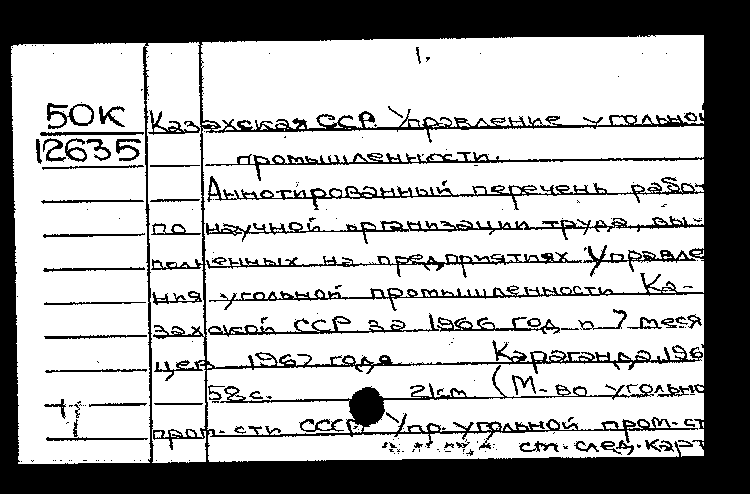 1.
50К Казахская ССР. Управление угольной
12635 промышленности.
Аннотированный перечень работ
по научной организации труда, вы-
полненных на предприятиях Управле
ния угольной промышленности Ка-
захской ССР за 1966 год и 7 меся
цев 1967 года Караганда, 196
58 с. 21см (М-во угольно
пром-сти СССР. Упр. угольной пром-ст
см. след. карт